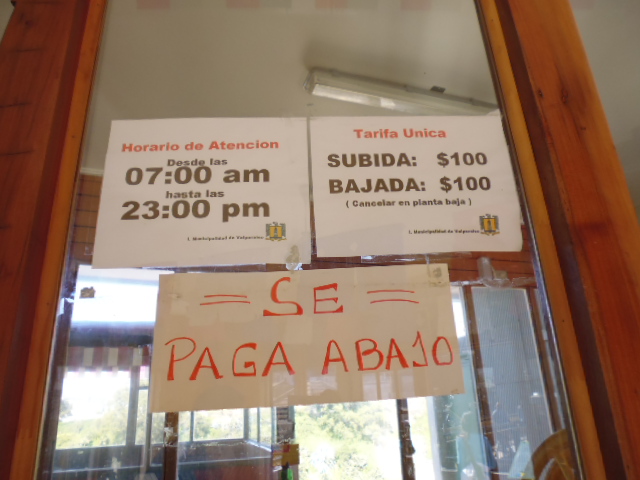 Horario de Atencion
Desde las
07:00 am
hasta las
23:00 pm
I. Municipalidad de Valparaíso
Tarifa Unica
SUBIDA: $100
BAJADA: $100
( Cancelar en planta baja )
I. Municipalidad de Valparaíso
= SE =
PAGA ABAJO